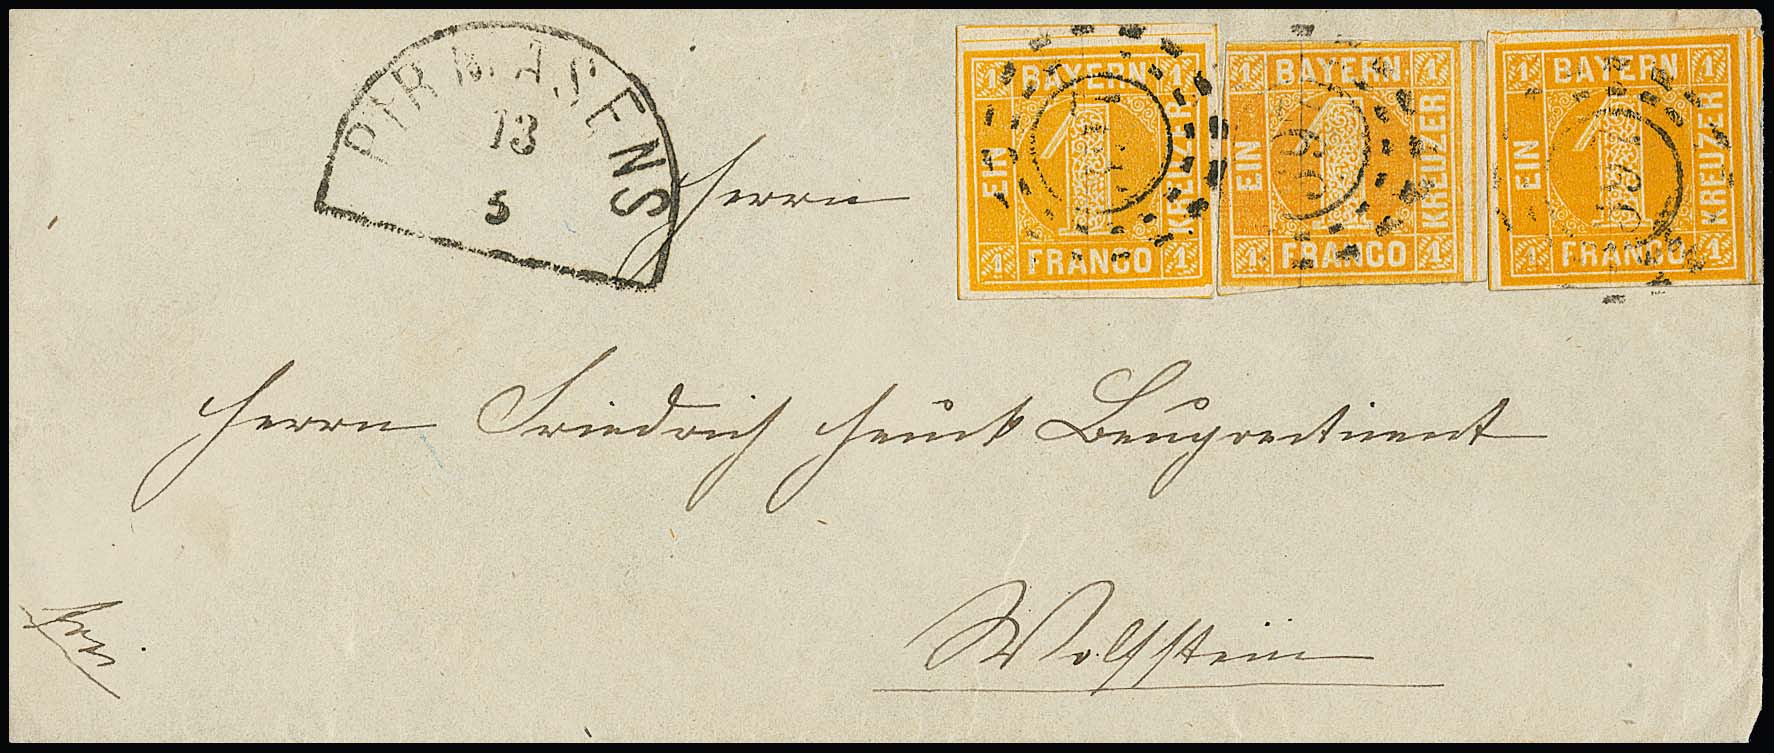 PIRMASENS
13
5
1 BAYERN 1
EIN
KREUZER
1 FRANCO 1
1 BAYERN 1
EIN
KREUZER
1 FRANCO 1
1 BAYERN 1
EIN
KREUZER
1 FRANCO 1
Herrn
Herrn Friedrich
Wolfstein
frei